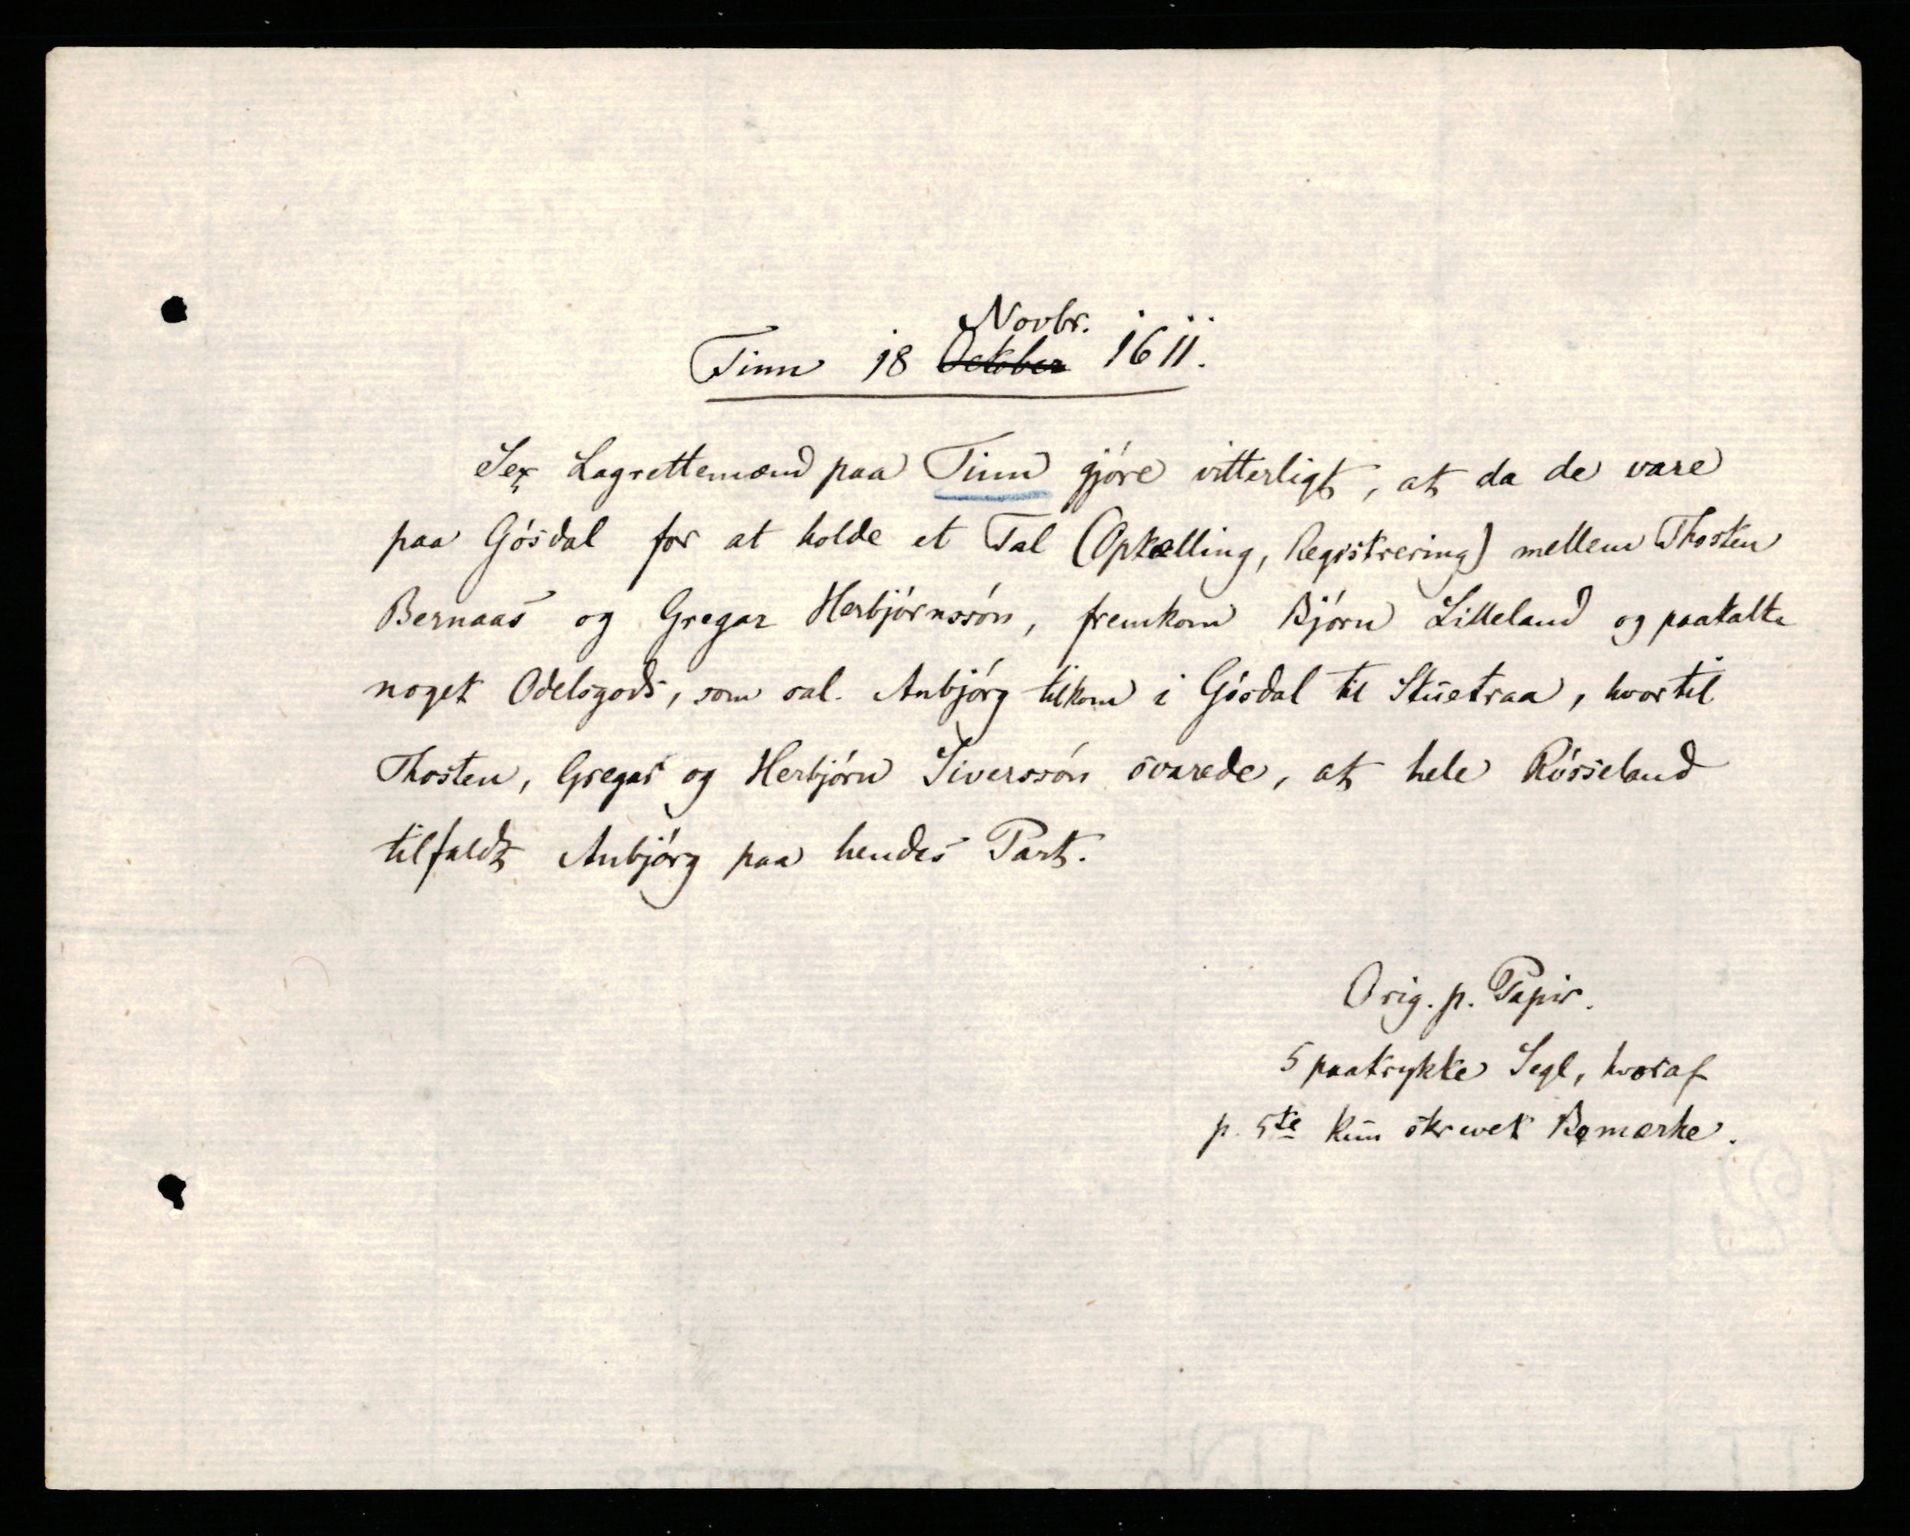 Novbr.
Tinn 18 October 1611.
Sex Lagrettemænd paa Tinn gjöre vitterligt, at da de vare
paa Gösdal for at holde et Tal (Optælling, Registrering) mellem Thosten
Bernaas og Gregar Herbjörnssön, fremkom Björn Lilleland og paatalte
noget Odelsgods, som sal. Anbjörg tilkom i Gösdal til Stuetraa, hvortil
Thosten, Gregar og Herbjörn Siverssön svarede, at hele Rösseland
tilfaldt Anbjörg paa hendes Part.
Orig. p. Papir.
5 paatrykte Segl, hvoraf
p. 5te kun skrevet Bomærke.